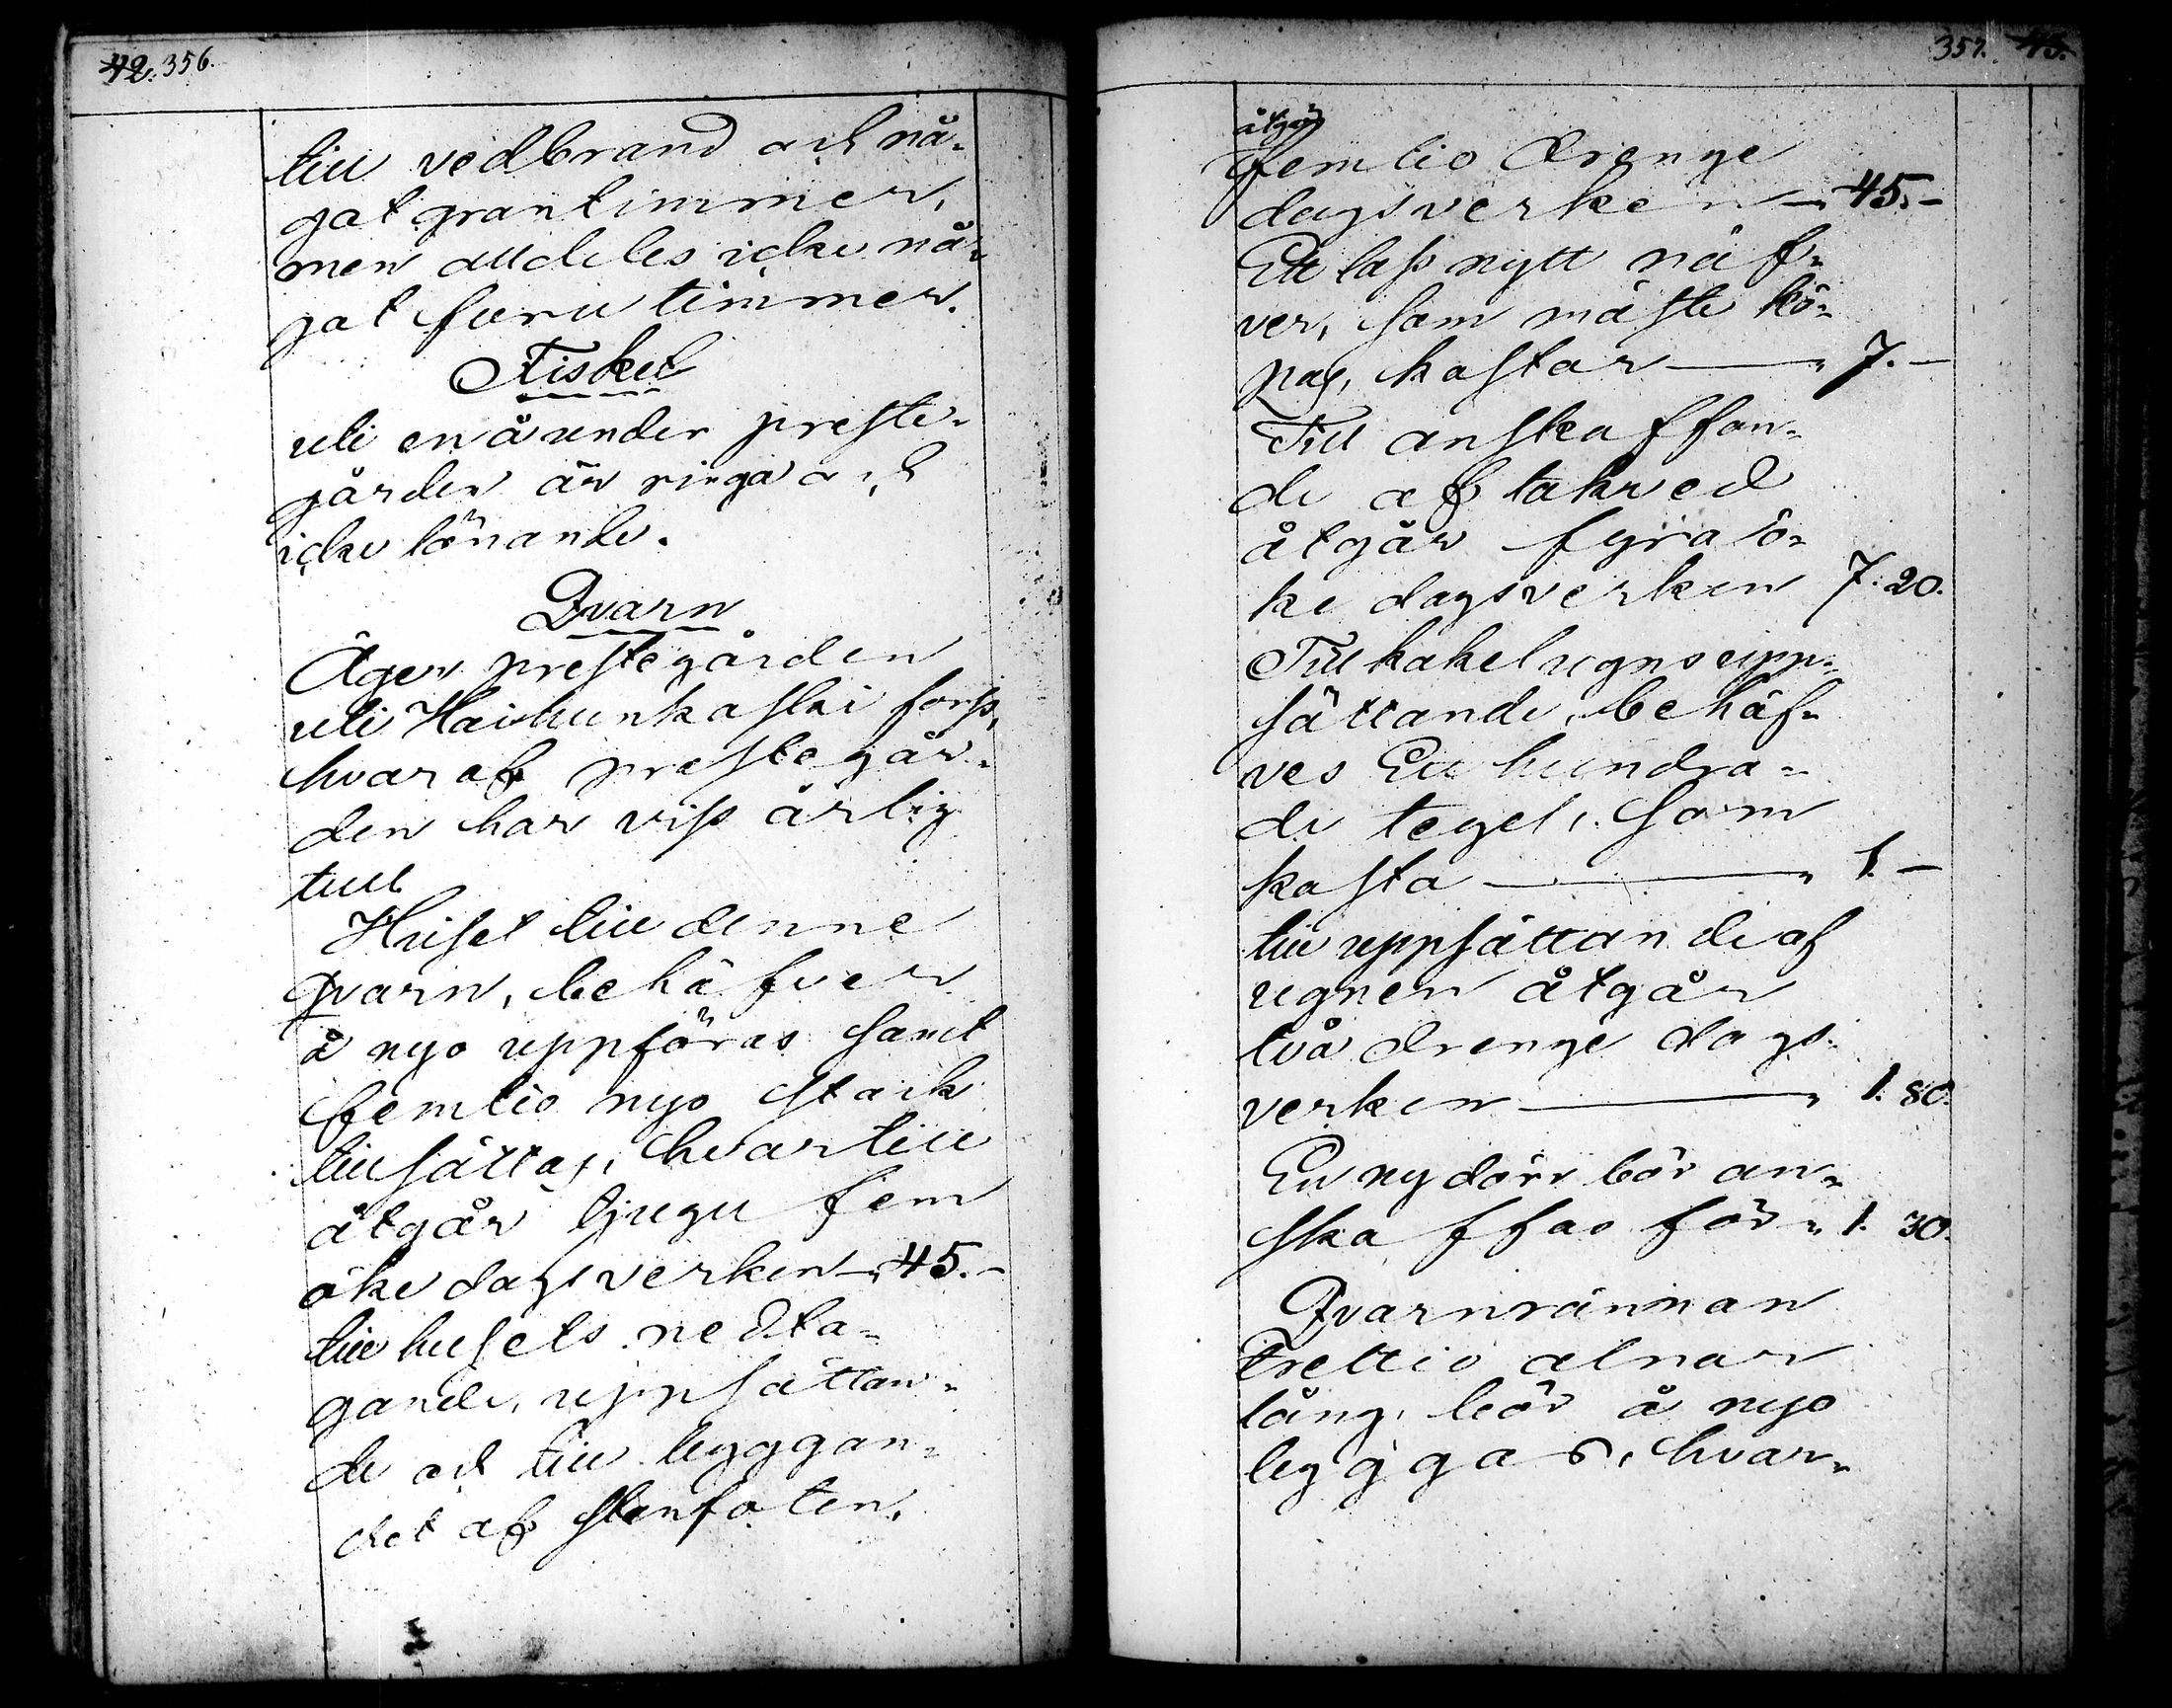 42. 356.
till vedbrand och nå-
got grantimmer,
men alldeles icke nå-
got furu timmer.
Fisket
uti en å under preste-
gården är ringa och
icke lönande.
Qvarn
Äger prestegården
uti Haihunkoski fors,
hvaraf prestegår-
den har viss årlig
tull
Huset till denne
qvarn, behöfver
å nyo uppföras samt
femtio nya stock
tillsättas, hvartill
åtgår tjugu fem
öke dagsverken — 45. –
till husets nedta-
gande, uppsättan-
de och till byggan-
det af stenfoten,
357. 43.
åtgår
femtio Drenge
dagsverken — 45. –
Ett lass nytt näf-
ver, som måste kö-
pas, kostar — 7. –
Till anskaffan-
de af takved
åtgår fyra ö-
ke dagsverken 7. 20.
Till kakelugns upp-
sättande, behöf-
ves Ett hundra-
de tegel, som
kosta — 1. –
till uppsättande af
ugnen åtgår
två drenge dags-
verken — 1. 80.
En ny dörr bör an-
skaffas för „ 1. 30.
Qvarnrännan
trettio alnar
lång, bör å nyo
byggas, hvar-